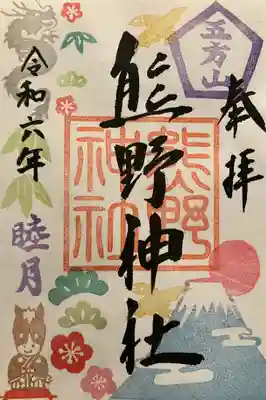 五方山
奉拝
熊野神社
熊野
神社
令和六年
睦月